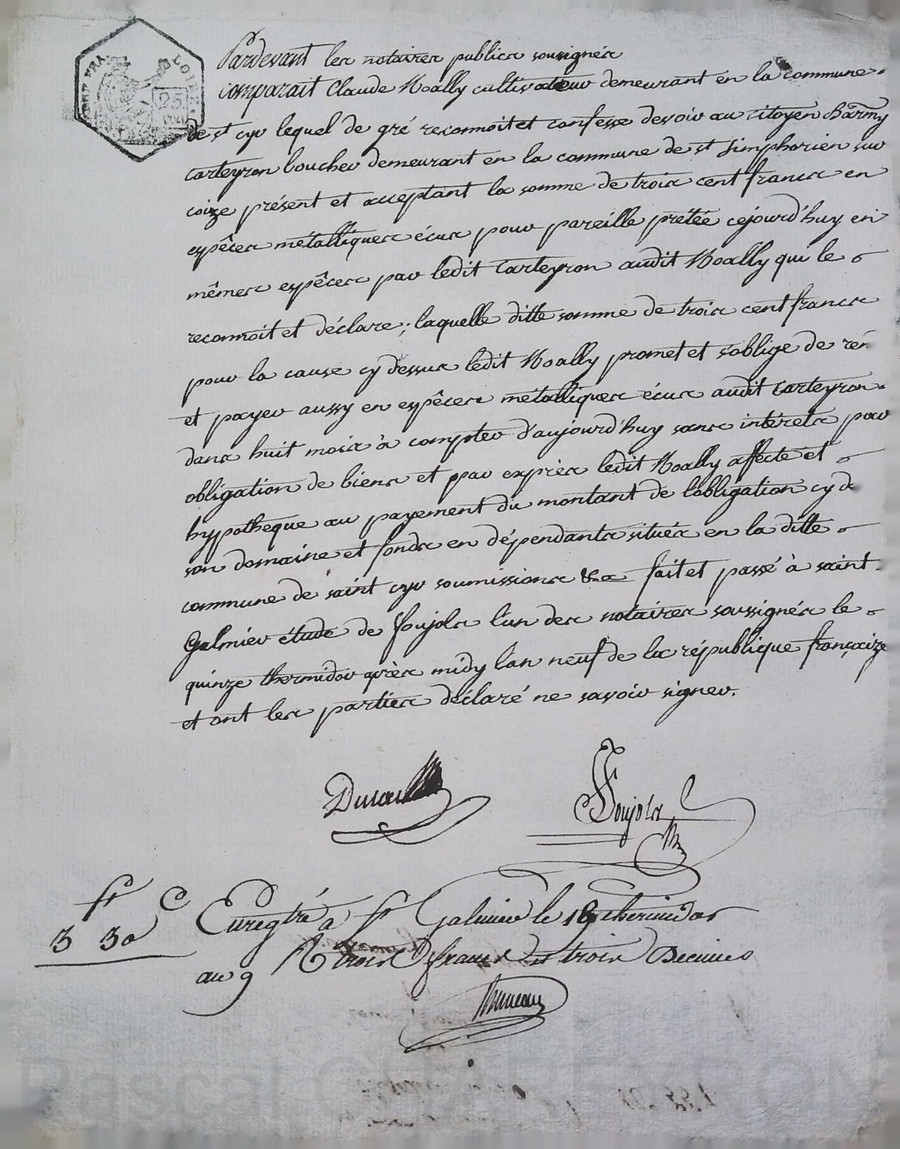 25
Pardevant les notaires publics sousignés
comparait Claude Noally cultivateur demeurant en la commune
de st cyr lequel de gré reconnoit et confesse devoir au citoyen Barmy
carteyron boucher demeurant en la commune de st simphorien sur
coize présent et acceptant la somme de trois cent francs en
espêces métalliques écus pour pareille pretée cejourd'huy en
mêmes espêces par ledit Carteyron audit Noally qui le
reconnoit et déclare; laquelle ditte somme de trois cent francs
pour la cause cy dessus ledit Noally promet et s'oblige de ren
et payer aussy en espêces métalliques écus audit Carteyron
dans huit mois à compter d'aujourd'huy sans intérêts par
obligation de biens et par exprès ledit Noally affecte et
hypotheque au payement du montant de l'obligation cy de
son domaine et fonds en dépendants situés en la ditte
commune de saint cyr soumissions &a fait et passé à saint
Galmier étude de Soujols l'un des notaires soussignés le
quinze thermidor après midy l'an neuf de la république françaize
et ont les parties déclaré ne savoir signer.
Soujols
fr C
3 30
Enregtré à st Galmier le 19 thermidor
an 9 R trois francs et trois Decimes